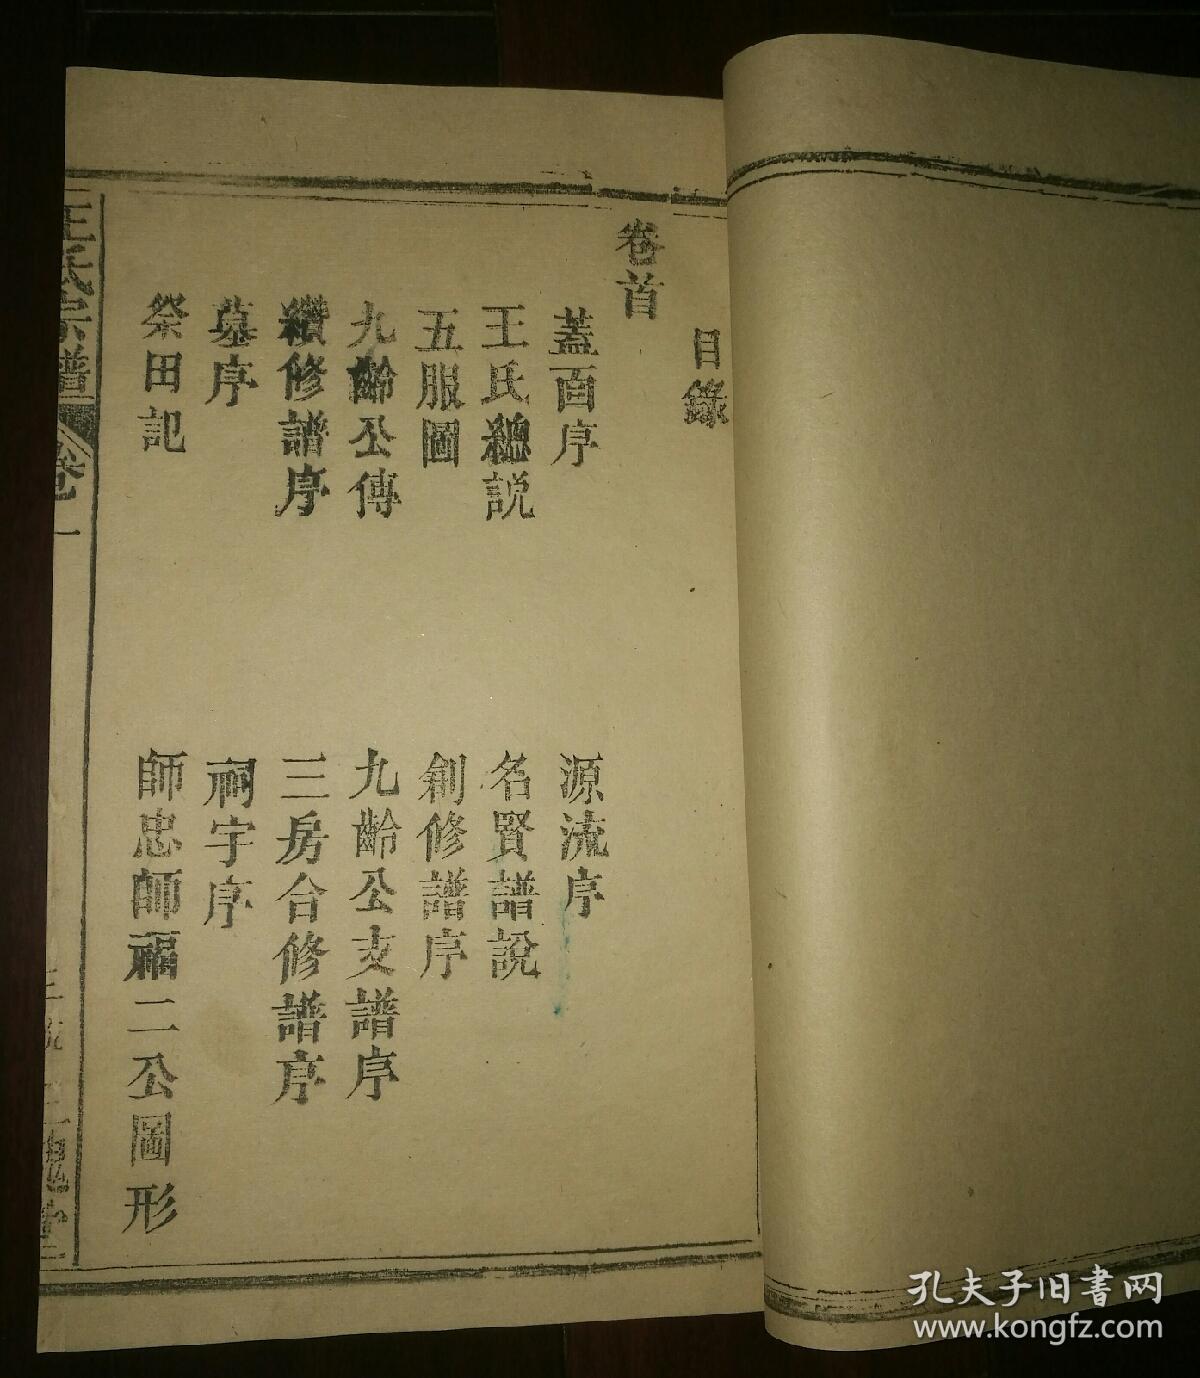 目錄
卷首
蓋面序
源流序
王氏總説
名賢譜說
五服圖
創修譜序
九齡公傳
九齡公支譜序
續修譜序
三房合修譜序
墓序
祠宇序
祭田記
師忠師福二公圖形
王氏宗譜
卷一
三槐堂
孔夫子旧书网
www.kongfz.com